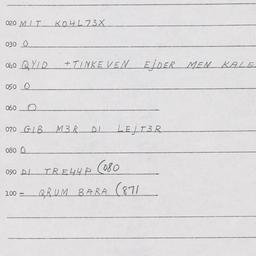 020 MIT KO4L73X
030 O
040 QYID +TINKEVEN EJDER MEN KALE
050 O
060 O
070 GIB M3R DI LEJT3R
080 O
090 DI TRE44P (080
100 - QRUM BARA (871